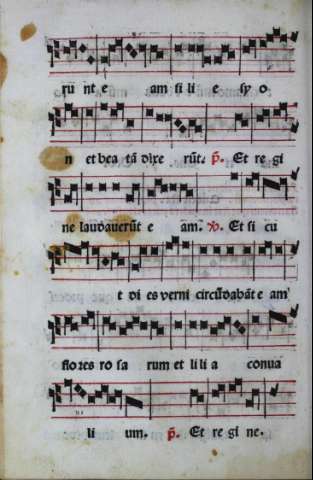 rũ nt e am fi li e sy o
n et bea tã dixe rũt. p̃. Et re gi
ne laudauerũt e am. ꝟ. Et si cu
t di es verni circũdabãt e am
flo res ro sa rum et li li a conua
li um. p̃. Et re gi ne.